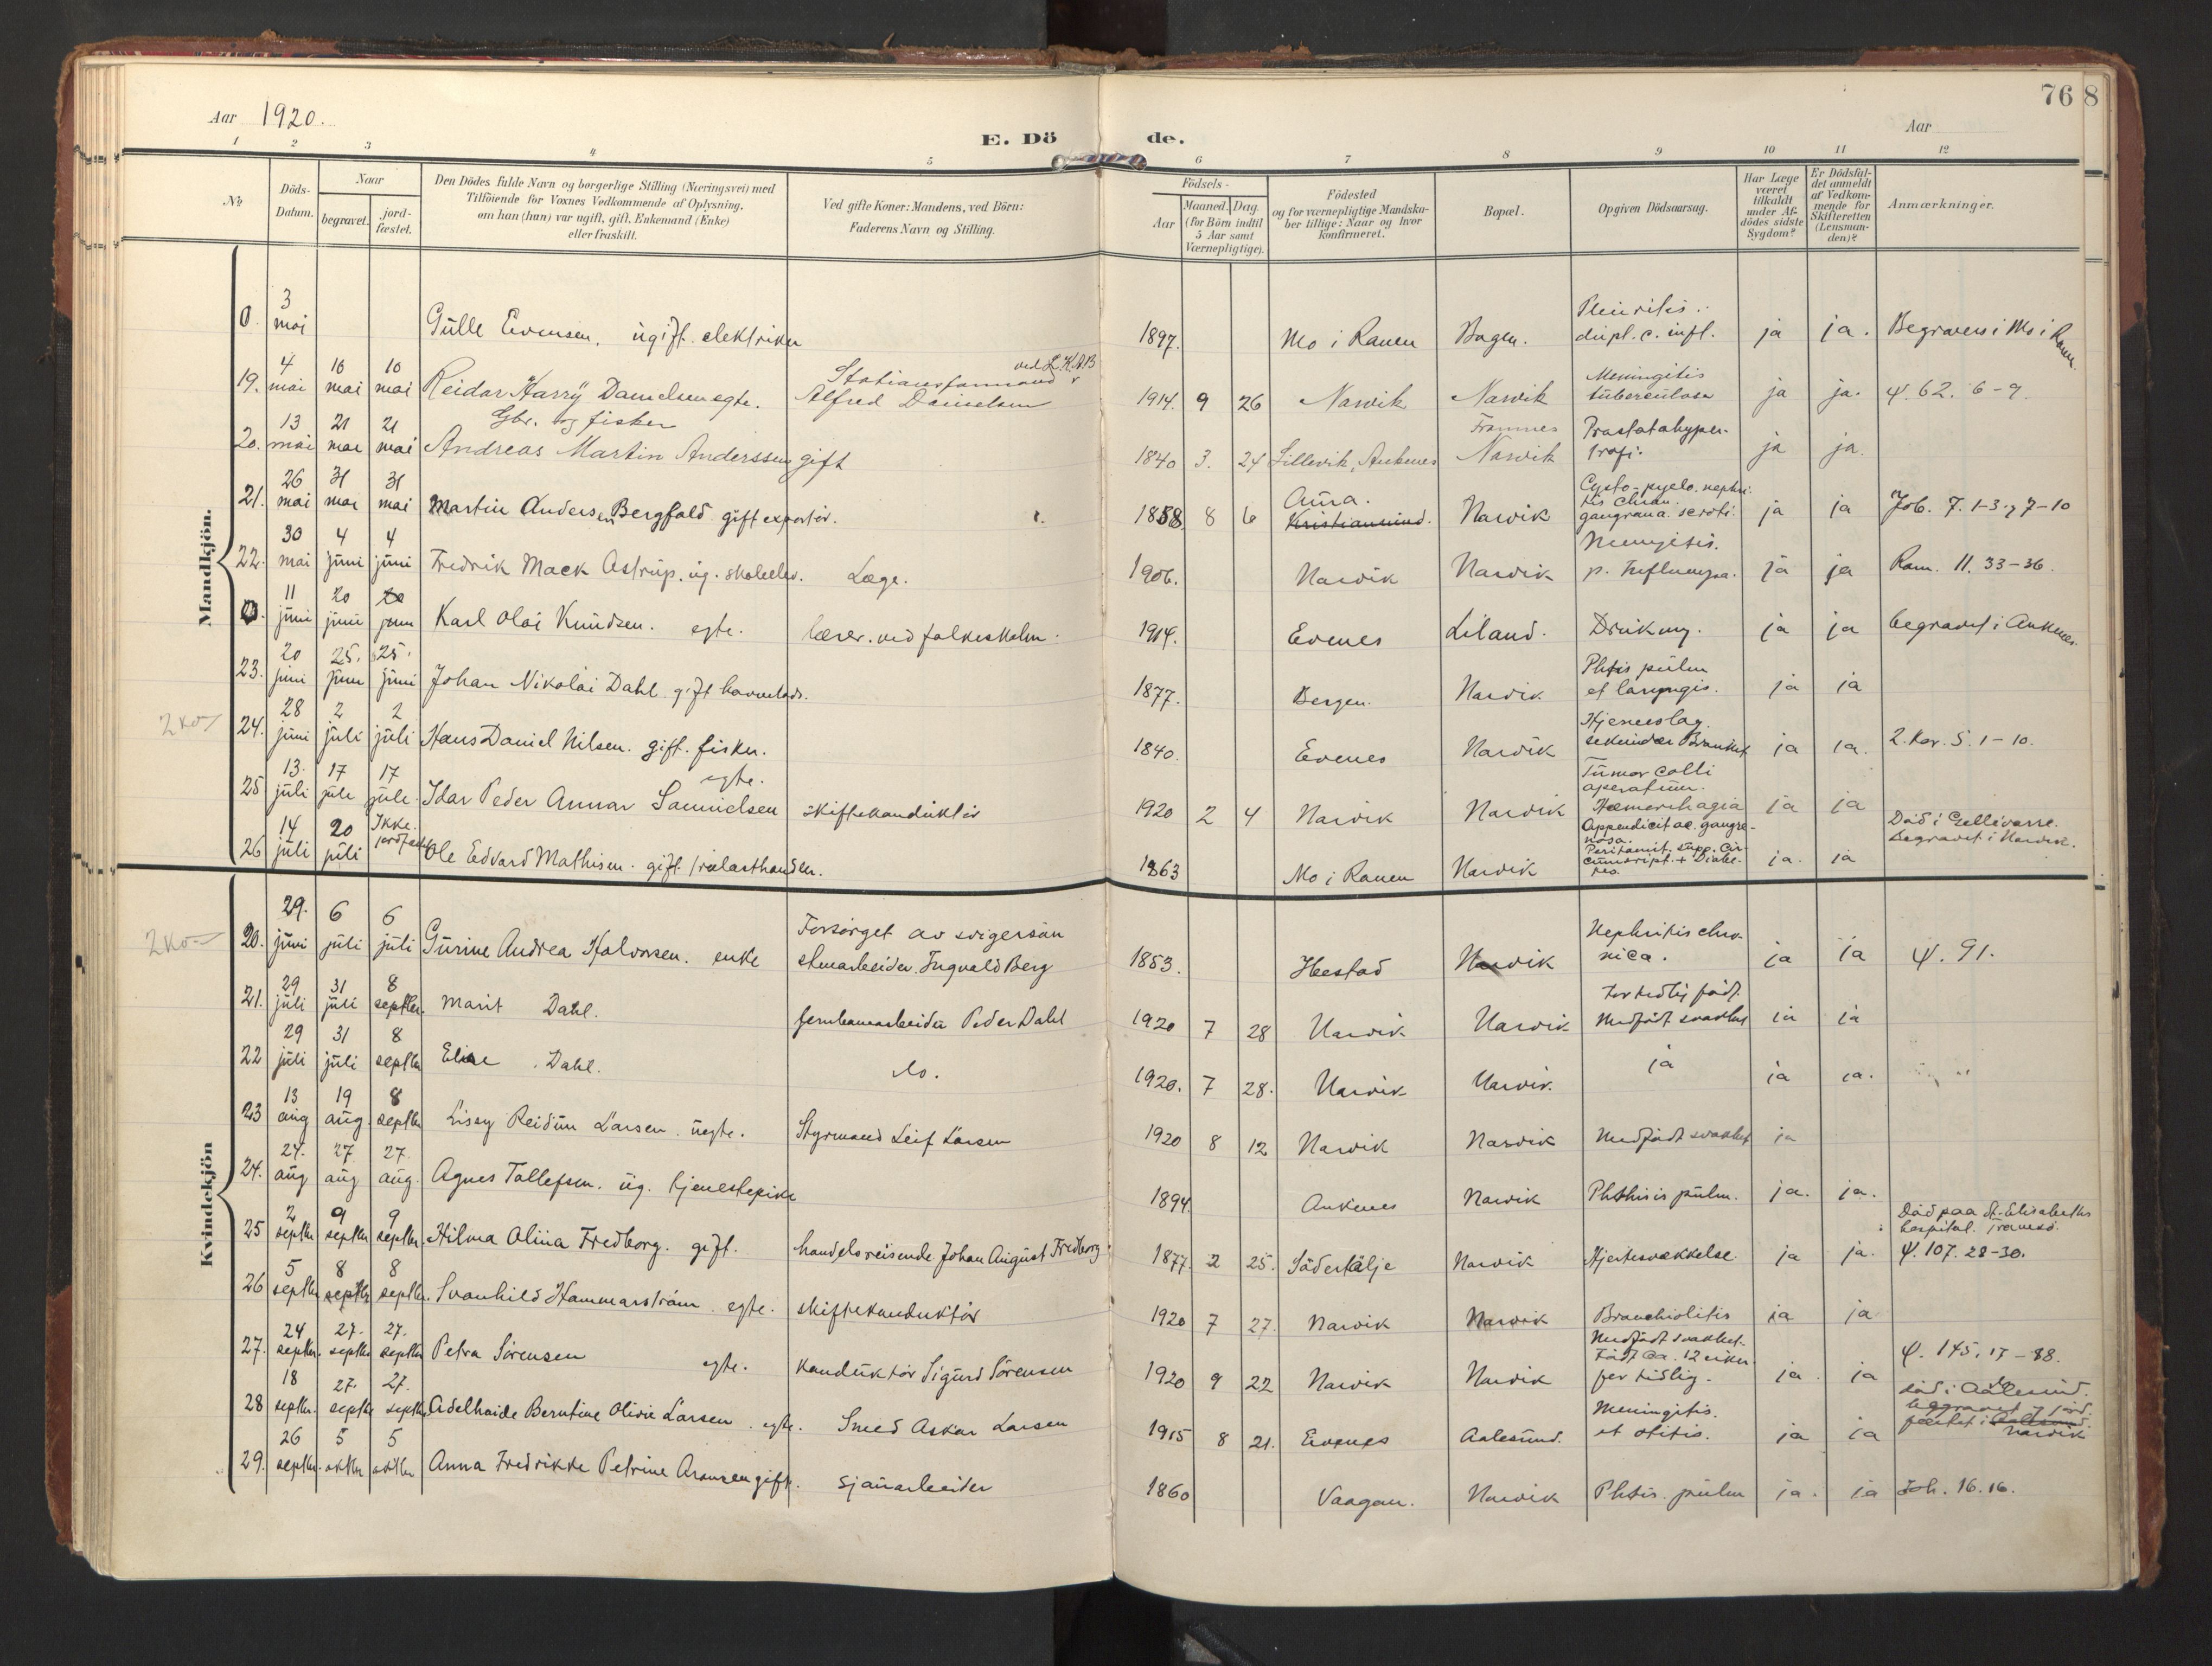 76 8
Aar 1920.
E. Dö de.
Aar
1 2 3 4 5 6 7 8 9 10 11 12
№
Döds-Datum.
Naar
begravet.
jord-fæstet.
Den Dödes fulde Navn og borgerlige Stilling (Næringsvei) med
Tilföiende for Voxnes Vedkommende af Oplysning,
om han (hun) var ugift, gift, Enkemand (Enke)
eller fraskilt.
Ved gifte Koner: Mandens, ved Börn:
Faderens Navn og Stilling.
Födsels-
Aar
Maaned. Dag.
(for Börn indtil
5 Aar samt
Værnepligtige).
Födested
og for værnepligtige Mandska-
ber tillige: Naar og hvor
konfirmeret.
Bopæl.
Opgiven Dödsaarsag.
Har Læge
været
tilkaldt
under Af-
dödes sidste
Sygdom?
Er Dödsfal-
det anmeldt
af Vedkom-
mende for
Skifteretten
(Lensman-
den)?
Anmærkninger.
Mandkjön.
0. 3 mai Gulle Evensen. ugift. elektriker 1897. Mo i Ranen Bogen. Pleuritis dupl. c. infl. ja ja. Begraves i Mo i Ranen.
19. 4 mai 10 mai 10 mai Reidar Harry Danielsen egte. Stationsformand ved L.K.A.B Alfred Danielsen 1914. 9 26 Narvik Narvik Meningitis tuberculosa ja ja. ψ. 62. 6-9.
20. 13 mai 21 mai 21 mai Gbr. og fisker Andreas Martin Anderssen gift 1840 3. 24 Lillevik, Ankenes Framnes Narvik Prostatahypertrofi. ja ja.
21. 26 mai 31 mai 31 mai Martin Andersen Bergfald gift expeditör. 1858 8 6 Aura. Kristiansund. Narvik Cysto-pyelo. nephritis chron. gangræna scroti. ja ja Job. 7. 1-3, 7-10
22. 30 mai 4 juni 4 juni Fredrik Mack Astrup. ug. skoleelev. Læge. 1906. Narvik Narvik Meningitis. p. Influenza. ja ja Rom. 11. 33-36.
0. 11 juni 20 juni 20 juni Karl Olai Knudsen. egte. lærer. ved folkeskolen. 1914. Evenes Liland. Drukning. ja ja begravet i Ankenes.
23. 20 juni 25. juni 25. juni Johan Nikolai Dahl gift 1877. Bergen. Narvik Phtis pulm et laryngis. ja ja
2 ko
24. 28 juni 2 juli 2 juli Hans Daniel Nilsen. gift. fisker. 1840. Evenes Narvik Hjerneslag. sekundær Bronkit ja ja. 2. Kor. 5. 1-10.
25 13. juli 17 juli 17 juli. Idar Peder Annar Samuelsen egte. skiftekonduktör 1920 2 4 Narvik Narvik Tumor colli operatum. Hæmorrhagia ja ja
26 14 juli 20 juli Ikke jordfæstet Ole Edvard Mathisen. gift. trælasthandler. 1863 Mo i Ranen Narvik Appendicit ac. gangrenosa. Peritonit. supp. circumscript. + Diabetes. ja. ja Död i Gellivarre. Begravet i Narvik.
Kvindekjön
2 ko
20. 29. juni 6 juli 6 juli Gurine Andrea Halvorsen. enke Forsörget av svigersön Ingvald Berg 1853. Hestad Narvik Nephritis chronica. ja ja ψ. 91.
21. 29 juli 31 juli 8 septbr. Marit Dahl. jernbanearbeider Peder Dahl 1920 7 28 Narvik Narvik For tidlig födt. Medfödt svakhet ja ja
22 29 juli 31 juli 8 septbr Elise Dahl. do. 1920. 7 28. Narvik Narvik. ja ja ja.
23 13 aug 19 aug. 8 septbr Lissy Reidun Larsen. uegte. Styrmand Leif Larsen 1920 8 12 Narvik Narvik Medfödt svakhet ja
24. 24. aug 27 aug 27. aug. Agnes Tollefsen. ug. tjenestepike 1894 Ankenes Narvik Phthisis pulm. ja. ja.
25 2 septbr. 9 septbr 9 septbr. Hilma Olina Fredborg. gift. handelsreisende Johan August Fredborg 1877. 2 25. Södertälje Narvik Hjertesvækkelse ja ja. Död paa St. Elisabeths hospital. Tromsö. ψ. 107. 28-30.
26 5 septbr. 8 septbr 8 septbr. Svanhild Hammarström. egte. skiftekonduktör 1920 7 27. Narvik Narvik Bronchiolitis ja ja
27. 24 septbr. 27. septbr 27. septbr Petra Sörensen egte. konduktör Sigurd Sörensen 1920 9 22 Narvik Narvik Medfödt svakhet. Födt ca. 12 uker for tidlig. ja ja ψ. 145. 17-
28 18 septbr. 27. septbr 27. septbr Adelhaide Berntine Olivie Larsen. egte. Smed Oskar Larsen 1915 8 21. Evenes Aalesund. Meningitis. et otitis. ja ja död i Aalesund. begravet og jordfæstet i Aalesund Narvik
29. 26 septbr. 5 oktbr 5 oktbr Anna Fredrikke Petrine Aronsen gift. sjauarbeider 1860 Vaagan. Narvik Phtis. pulm ja. ja Joh. 16. 16.